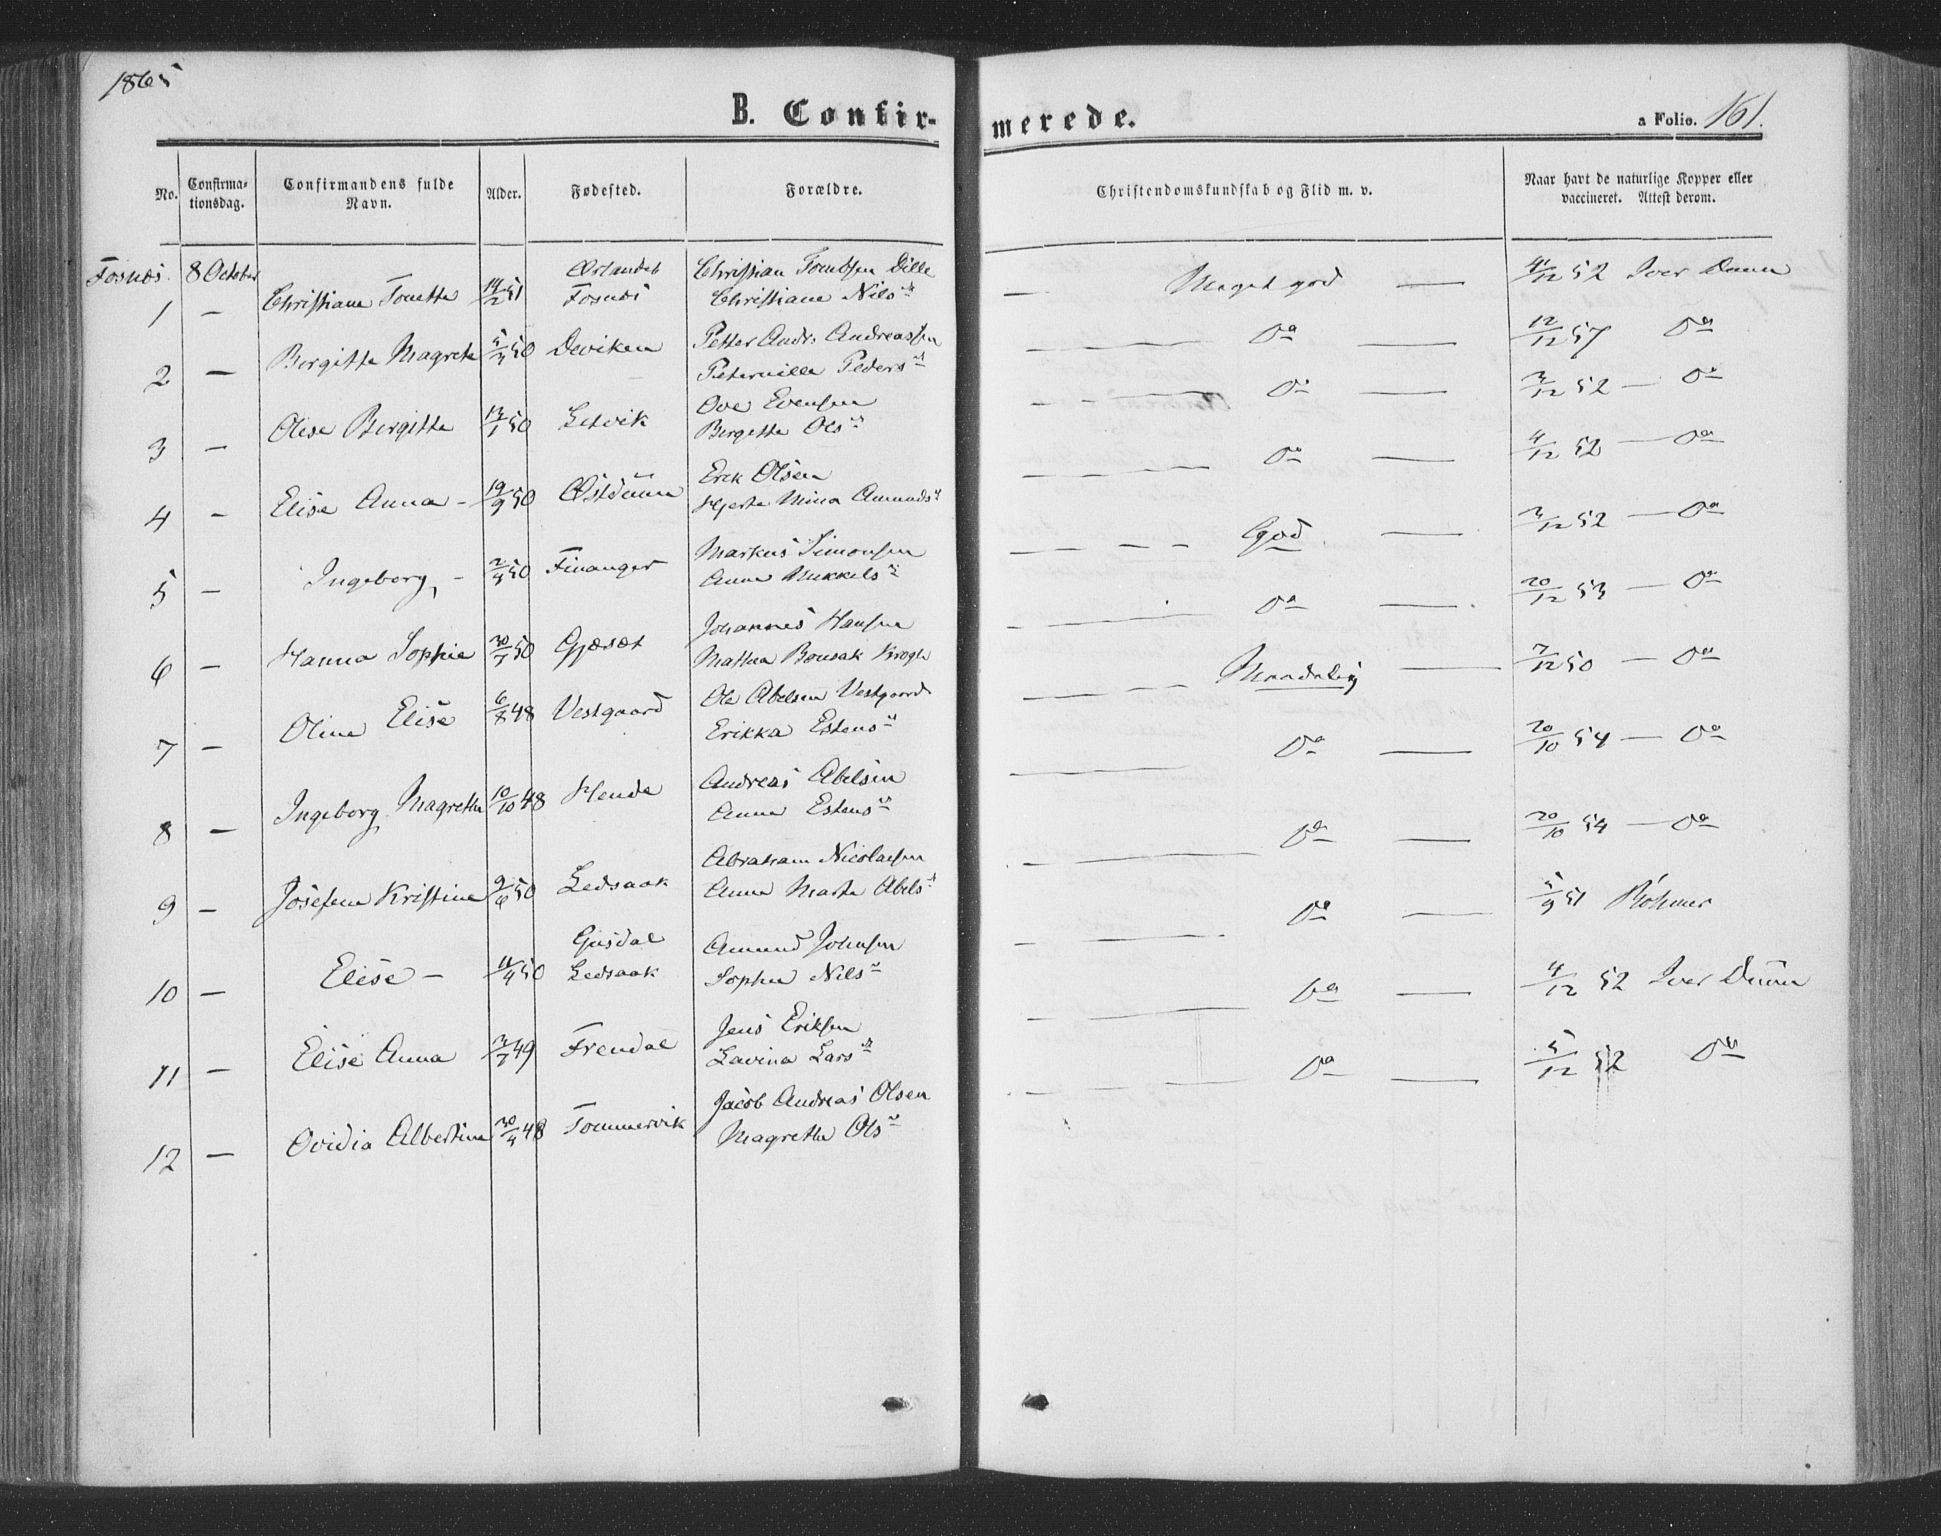 1865
B. Confir-
merede.
a Folio. 161.
No.
Confirma-
tionsdag.
Confirmandens fulde
Navn.
Alder.
Fødested.
Forældre.
Christendomskundskab og Flid m. v.
Naar havt de naturlige Kopper eller
vaccineret. Attest derom.
Fosnæs. 8 October
1 — Christiane Tonette 14/2 51 Ørlandet Fosnæs Christian Tombsen Dille Christiane Nilsdt — Meget god — 4/12 52 Iver Duun
2 — Bergitte Magrete 5/4 50 Deviken Petter Andr. Andreassen Peternille Pedersdt — Do — 12/12 57 Do
3 — Olise Birgitte 13/1 50 Setvik Ove Evensen Bergitte Olsdt — Do — 3/12 52 — Do
4 — Elise Anna — 19/9 50 Østduun Erik Olsen Hjerte Mina Amundsdt — Do — 4/12 52 — Do
5 — Ingeborg, — 2/4 50 Finanger Markus Simonsen Anna Mikkelsdt — God — 3/12 52 — Do
6 — Hanna Sophie 30/7 50 Gjæsæt Johannes Hansen Mathea Bonsak Krogh — Do — 20/12 53 — Do
7 — Oline Elise 6/8 48 Vestgaard Ole Abelsen Vestgaard Erikka Estensdt — Maadelig — 7/12 50 — Do
8 — Ingeborg Magrethe 10/10 48 Hende Andreas Abelsen Anna Estensdt — Do — 20/10 54 — Do
9 — Josefene Kristine 9/6 50 Ledsaak Abraham Nicolaisen Anna Marta Abelsdt — Do — 20/10 54 — Do
10 — Elise — 11/4 50 Gusdal Ledsaak Amund Johnsen Sophie Nilsdt — Do — 5/9 51 Böhmer
11 — Elise Anna 3/7 49 Frendal Jens Eriksen Lavina Larsdt — Do — 4/12 52 Iver Duun
12 — Ovidia Albertine 30/4 48 Tommervik Jacob Andreas Olsen Magrethe Olsdt — Do — 5/12 52 Do